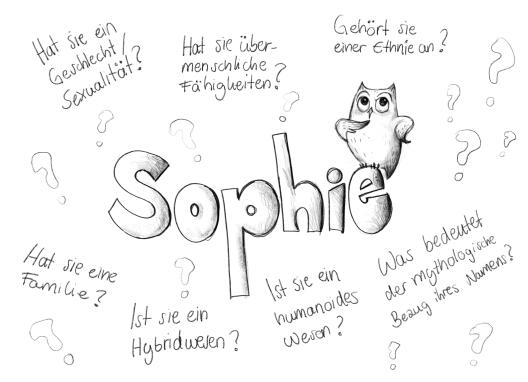 Hat sie ein
Geschlecht/
Sexualität?
Hat sie über-
menschliche
Fähigkeiten?
Gehört sie
einer Ethnie an?
Sophie
Hat sie eine
Familie?
Ist sie ein
Hybridwesen?
Ist sie ein
humanoides
Wesen?
Was bedeutet
der mythologische
Bezug ihres Namens?